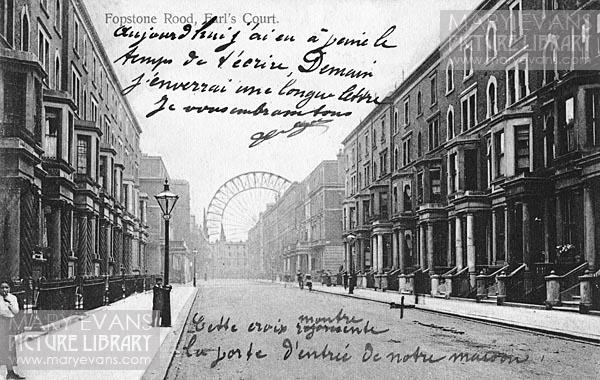 Fopstone Road, Earl's Court.
Aujourd'hui j'ai eu à peine le
temps de t'écrire, Demain
j'enverrai une longue lettre
Je vous embrasse tous
Cette croix montre représente
la porte d'entrée de notre maison
MARY EVANS
PICTURE LIBRARY
MARY EVANS
PICTURE LIBRARY
www.maryevans.com